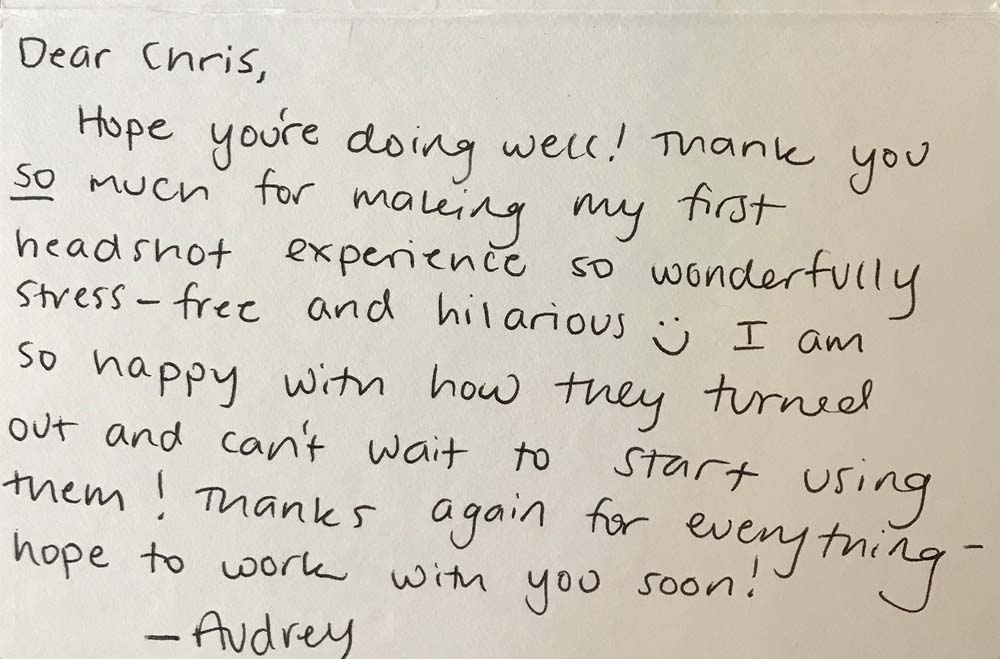 Dear Chris,
Hope you're doing well! Thank you
so much for making my first
headshot experience so wonderfully
stress-free and hilarious :) I am
so happy with how they turned
out and can't wait to start using
them! Thanks again for everything-
hope to work with you soon!
- Audrey